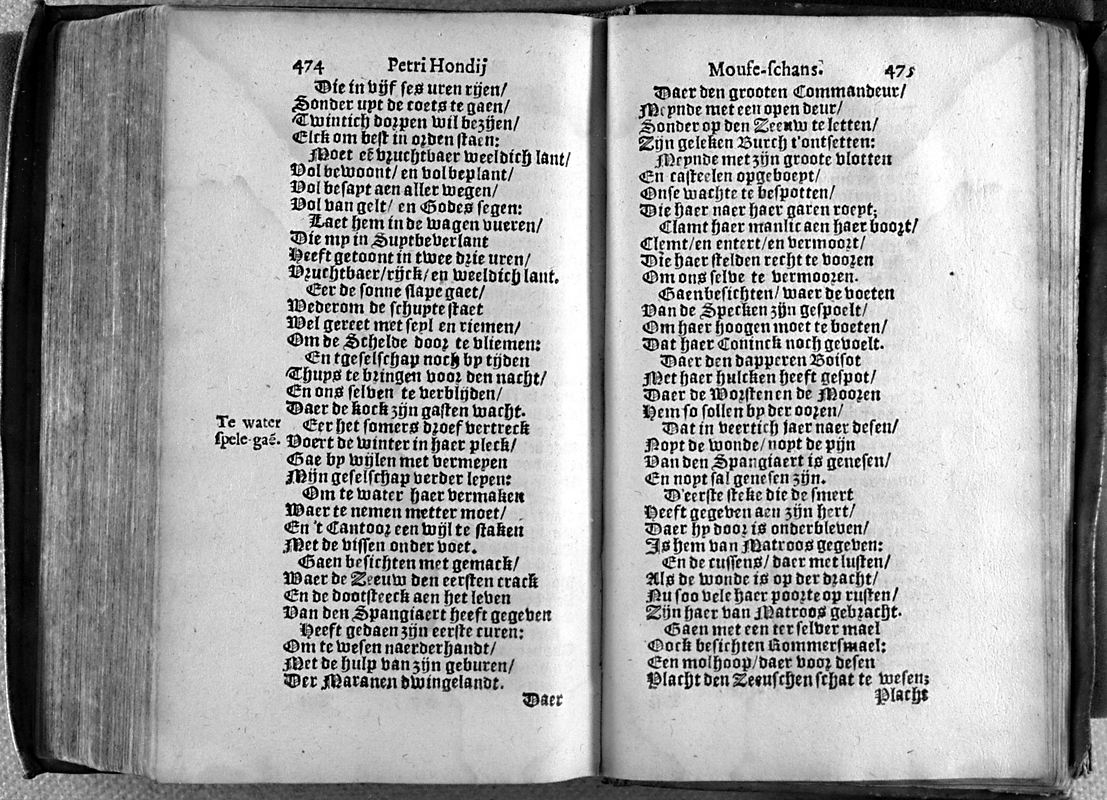 474 Petri Hondij
Die in vijf ses uren rijen/
Sonder uyt de coets te gaen/
Twintich dorpen wil bezijen/
Elck om best in orden staen:
Moet eē vruchtbaer weeldich lant/
Vol bewoont/ en vol beplant/
Vol besapt aen aller wegen/
Vol van gelt/ en Godes segen:
Laet hem in de wagen vueren/
Die my in Suytbeverlant
Heeft getoont in twee drie uren/
Vruchtbaer/rijck/en weeldich lant.
Eer de sonne slape gaet/
Wederom de schuyte staet
Wel gereet met seyl en riemen/
Om de Schelde door te vliemen:
En tgeselschap noch by tijden
Thuys te bringen voor den nacht/
En ons selven te verblijden/
Daer de kock zijn gasten wacht.
Te water
spele-gaē.
Eer het somers droef vertreck
Voert de winter in haer pleck/
Gae by wijlen met vermeyen
Mijn geselschap verder leyen:
Om te water haer vermaken
Waer te nemen metter moet/
En 't Cantoor een wijl te staken
Met de vissen onder voet.
Gaen besichten met gemack/
Waer de Zeeuw den eersten crack
En de dootsteeck aen het leven
Van den Spangiaert heeft gegeven
Heeft gedaen zijn eerste curen:
Om te wesen naerderhandt/
Met de hulp van zijn geburen/
Der Maranen dwingelandt.
Daer
Moufe-schans. 475
Daer den grooten Commandeur/
Meynde met een open deur/
Sonder op den Zeeuw te letten/
Zijn geleken Burch t'ontsetten:
Meynde met zijn groote vlotten
En casteelen opgeboeyt/
Onse wachte te bespotten/
Die haer naer haer garen roeyt;
Clamt haer manlic aen haer boort/
Clemt/en entert/en vermoort/
Die haer stelden recht te vooren
Om ons selve te vermooren.
Gaen besichten/ waer de voeten
Van de Specken zijn gespoelt/
Om haer hoogen moet te boeten/
Dat haer Coninck noch gevoelt.
Daer den dapperen Boisot
Met haer hulcken heeft gespot/
Daer de Worsten en de Mooren
Hem so sollen by der ooren/
Dat in veertich jaer naer desen/
Noyt de wonde/noyt de pijn
Van den Spangiaert is genesen/
En noyt sal genesen zijn.
D'eerste steke die de smert
Heeft gegeven aen zijn hert/
Daer hy door is onderbleven/
Is hem van Matroos gegeven:
En de cussens/ daer met lusten/
Als de wonde is op der dracht/
Nu soo vele haer poorte op rusten/
Zijn haer van Matroos gebracht.
Gaen met een ter selver mael
Oock besichten Rommerswael:
Een molhoop/daer voor desen
Placht den Zeeuschen schat te wesen;
Placht